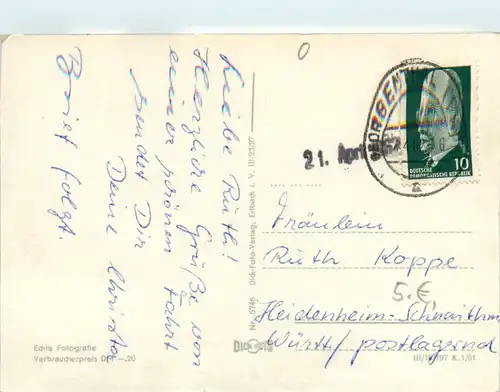 Liebe Ruth!
Herzliche Grüße von
einer schönen Fahrt
sendet Dir
Deine Christa
Brief folgt.
Echte Fotografie
Verbraucherpreis DM —.20
Nr. 6746 Dick-Foto-Verlag, Erlbach i. V. III/23/27
GEORGENTHAL
21. April
a
DEUTSCHE
DEMOKRATISCHE REPUBLIK
10
Fräulein
Ruth Koppe
5.€
Heidenheim-Schnaitheim
Württ/ postlagernd
K. 1/61